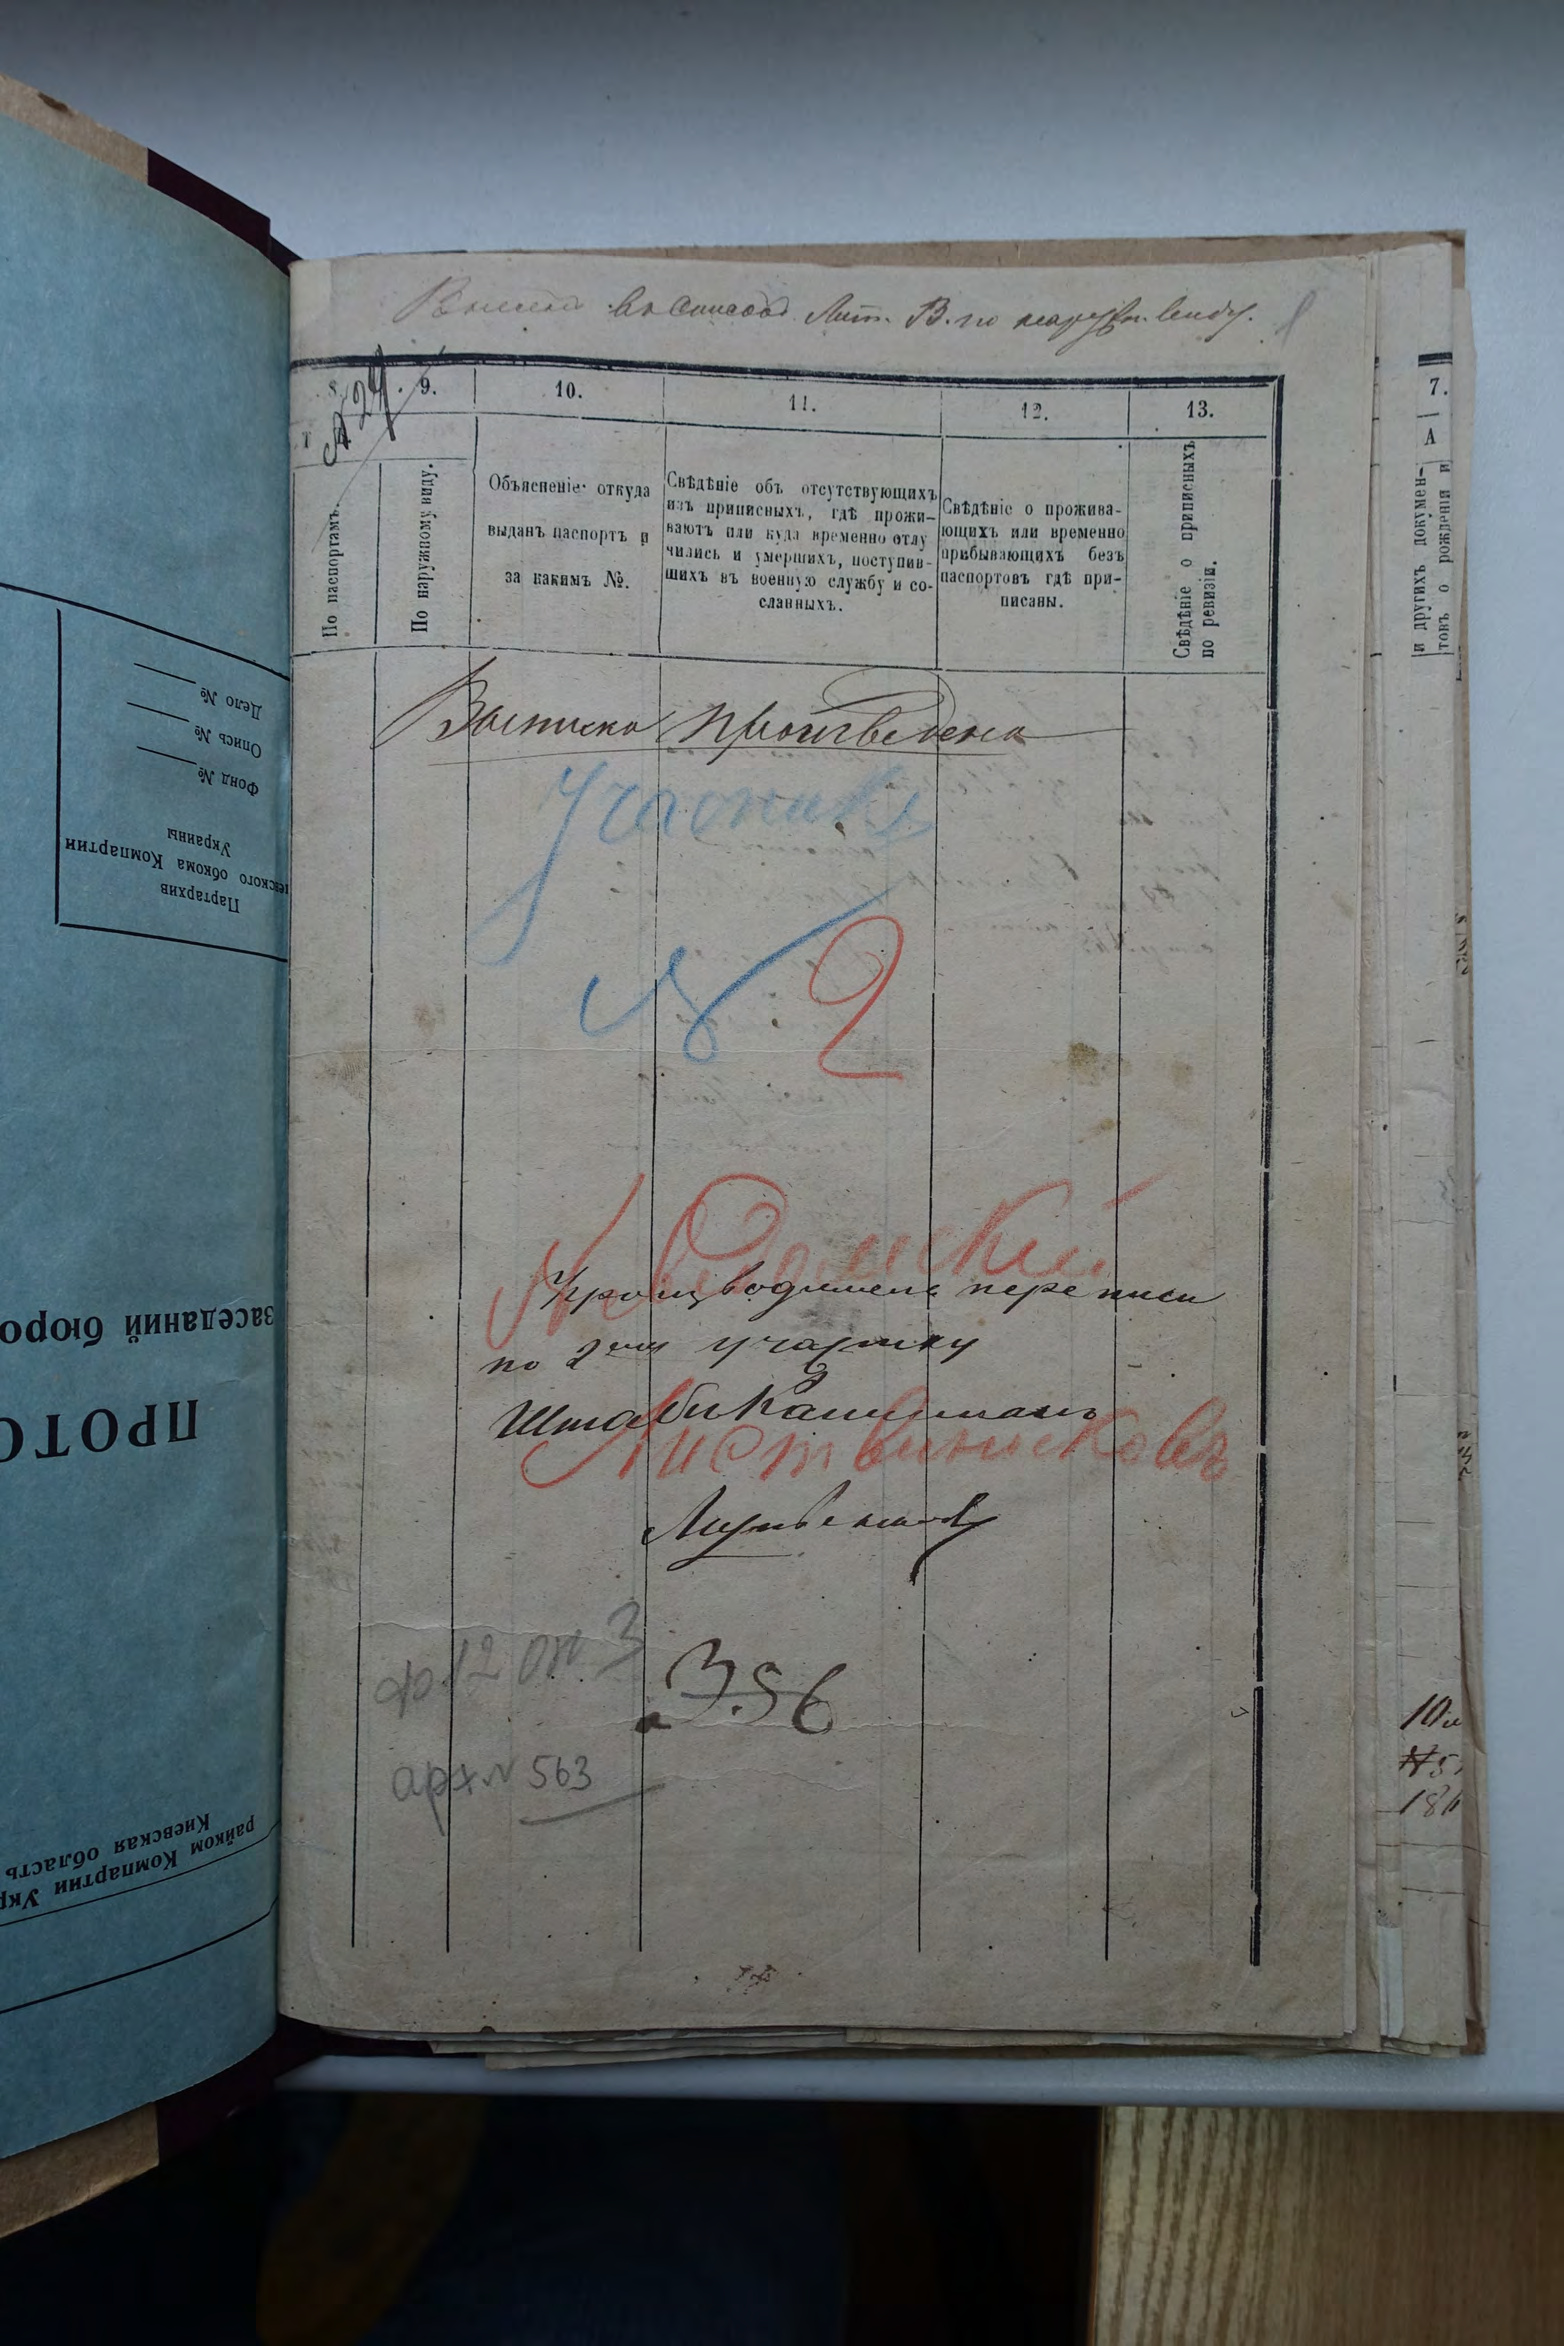 въ списокъ Лит. В. по наружн. виду.
8. 9. 10. 11. 12. 13.
№ 24
По паспортамъ.
По наружному виду.
Объясненіе откуда
выданъ паспортъ и
за какимъ №.
Свѣдѣніе объ отсутствующихъ
изъ приписныхъ, гдѣ прожи-
ваютъ или куда временно отлу
чились и умершихъ, поступив-
шихъ въ военную службу и со-
сланныхъ.
Свѣдѣніе о прожива-
ющихъ или временно
прибывающихъ безъ
паспортовъ гдѣ при-
писаны.
Свѣдѣніе о приписныхъ
по ревизіи.
Выписка произведена
Участокъ
№ 2
Производитель переписи
по 2му участку
Штабъ Капитанъ
Листвинниковъ
ф. 12 оп 3
а 3.56
арх. № 563
7.
А
и другихъ докумен-
товъ о рожденіи и
Партархив
евского обкома Компартии
Украины
Фонд №
Опись №
Дело №
ПРОТО
заседаний бюро
райком Компартии Укр
Киевская область